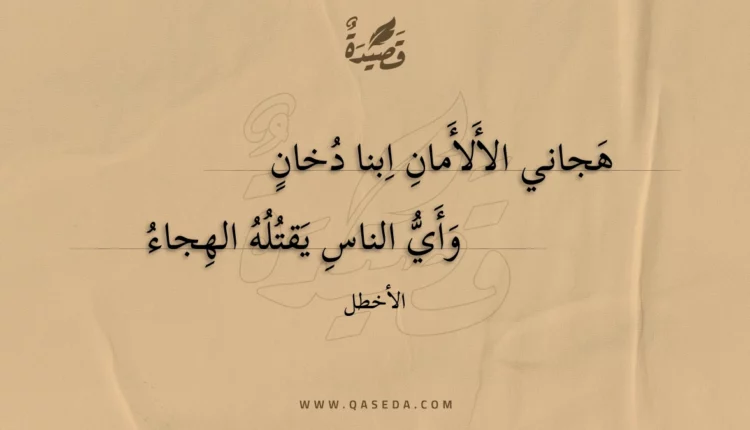 قَصِيدَةٌ
هَجاني الأَلأَمانِ اِبنا دُخانٍ
وَأَيُّ الناسِ يَقتُلُهُ الهِجاءُ
الأخطل
WWW.QASEDA.COM